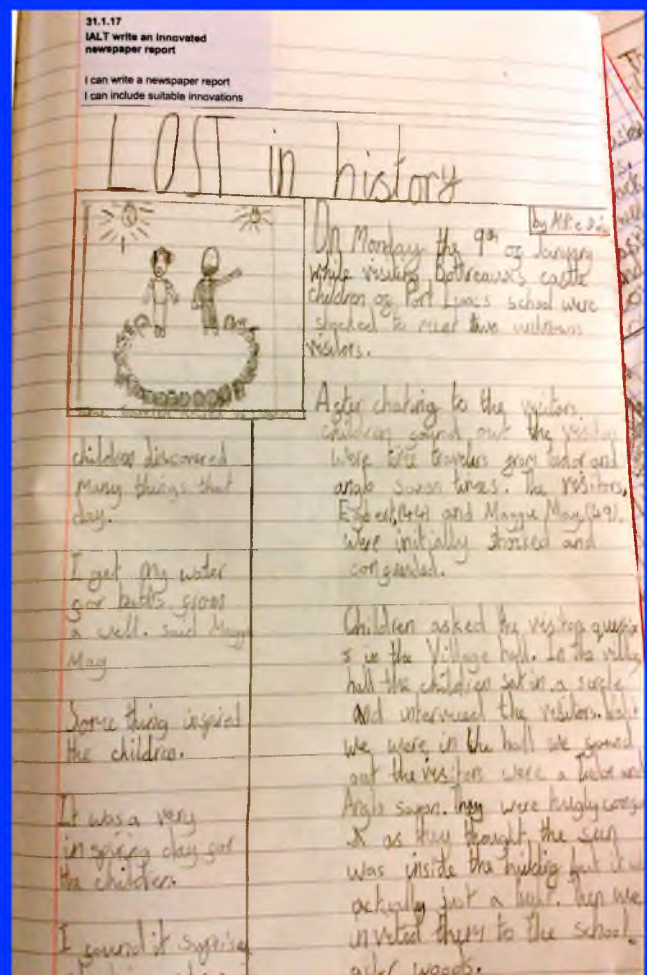 31.1.17
IALT write an innovated
newspaper report
I can write a newspaper report
I can include suitable innovations
LOST in history
by
On Monday the 9th of January
while visiting Bottreaux's castle
children of Port school were
shocked to meet two unknown
visitors.
After chating to the visitors
children found out the visitors
were time travelers from tudor and
anglo saxon times. The visitors,
Egbert(44) and Maggie May(49).
were initially shocked and
confused.
Children asked the visitors question
s in the Village hall. In the village
hall the children sat in a
and interviewed the visitors.
we were in the hall we found
out the visitors were a Tudor and
Anglo saxon. They were hugly
as they thought the sun
was inside the building but it
actually just a light. Then we
invited them to the school.
after
children discovered
many things that
day.
I get my water
for baths from
a well. said Maggie
May
Some thing inspired
the children.
It was a very
inspiring day for
the children.
I found it